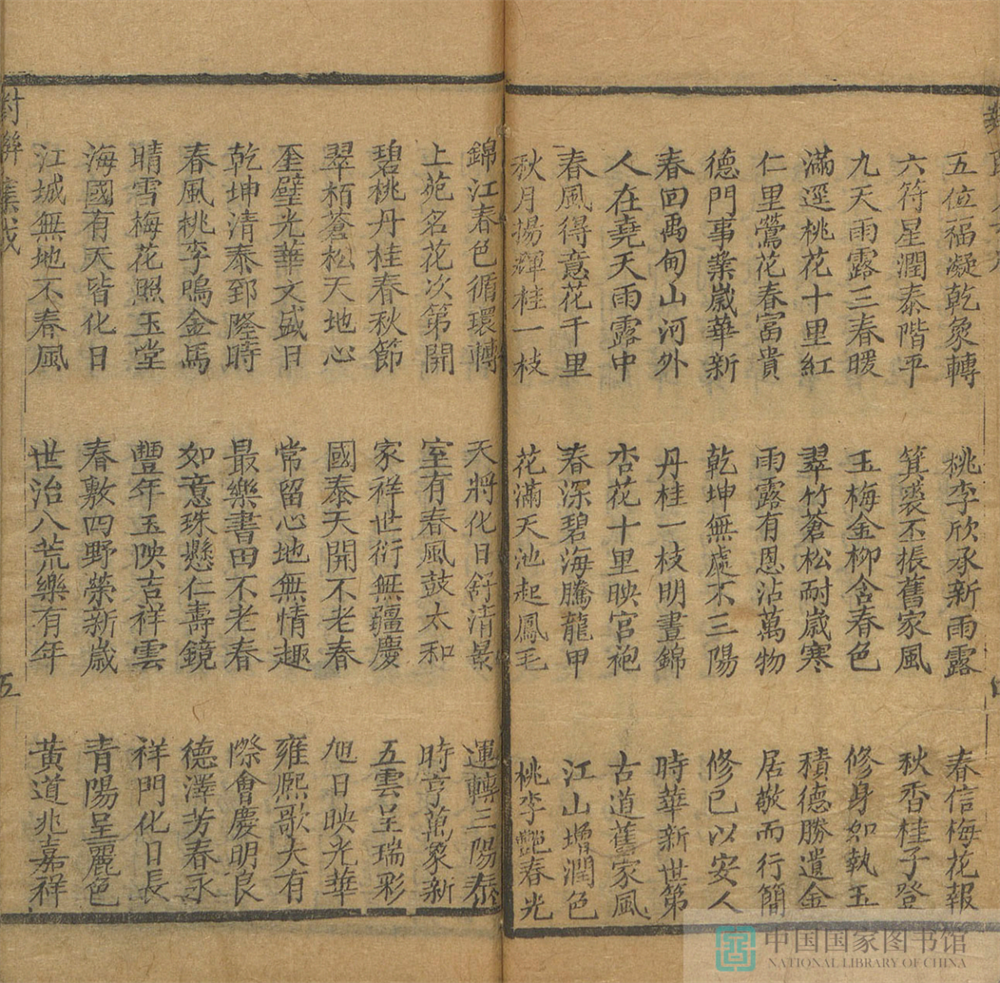 五位福凝乾象轉
六符星潤泰階平
九天雨露三春暖
滿逕桃花十里紅
仁里鶯花春富貴
德門事業嵗華新
春回禹甸山河外
人在堯天雨露中
春風得意花千里
秋月揚輝桂一枝
桃李欣承新雨露
箕裘丕振舊家風
玉梅金柳含春色
翠竹蒼松耐嵗寒
雨露有恩沾萬物
乾坤無處不三陽
丹桂一枝明晝錦
杏花十里映宮袍
春深碧海騰龍甲
花滿天池起鳳毛
春信梅花報
秋香桂子登
修身如執玉
積德勝遺金
居敬而行簡
修己以安人
時華新世第
古道舊家風
江山增潤色
桃李艷春光
錦江春色循環轉
上苑名花次第開
碧桃丹桂春秋節
翠栢蒼松天地心
奎璧光華文盛日
乾坤清泰郅隆時
春風桃李鳴金馬
晴雪梅花照玉堂
海國有天皆化日
江城無地不春風
天將化日舒清景
室有春風鼓太和
家祥世衍無疆慶
國泰天開不老春
常留心地無情趣
最樂書田不老春
如意珠懸仁壽鏡
豐年玉映吉祥雲
春敷四野榮新嵗
世治八荒樂有年
運轉三陽泰
時亨萬象新
五雲呈瑞彩
旭日映光華
雍熙歌大有
際會慶明良
德澤芳春永
祥門化日長
青陽呈麗色
黃道兆嘉祥
對聯集成
五
中国国家图书馆
NATIONAL LIBRARY OF CHINA